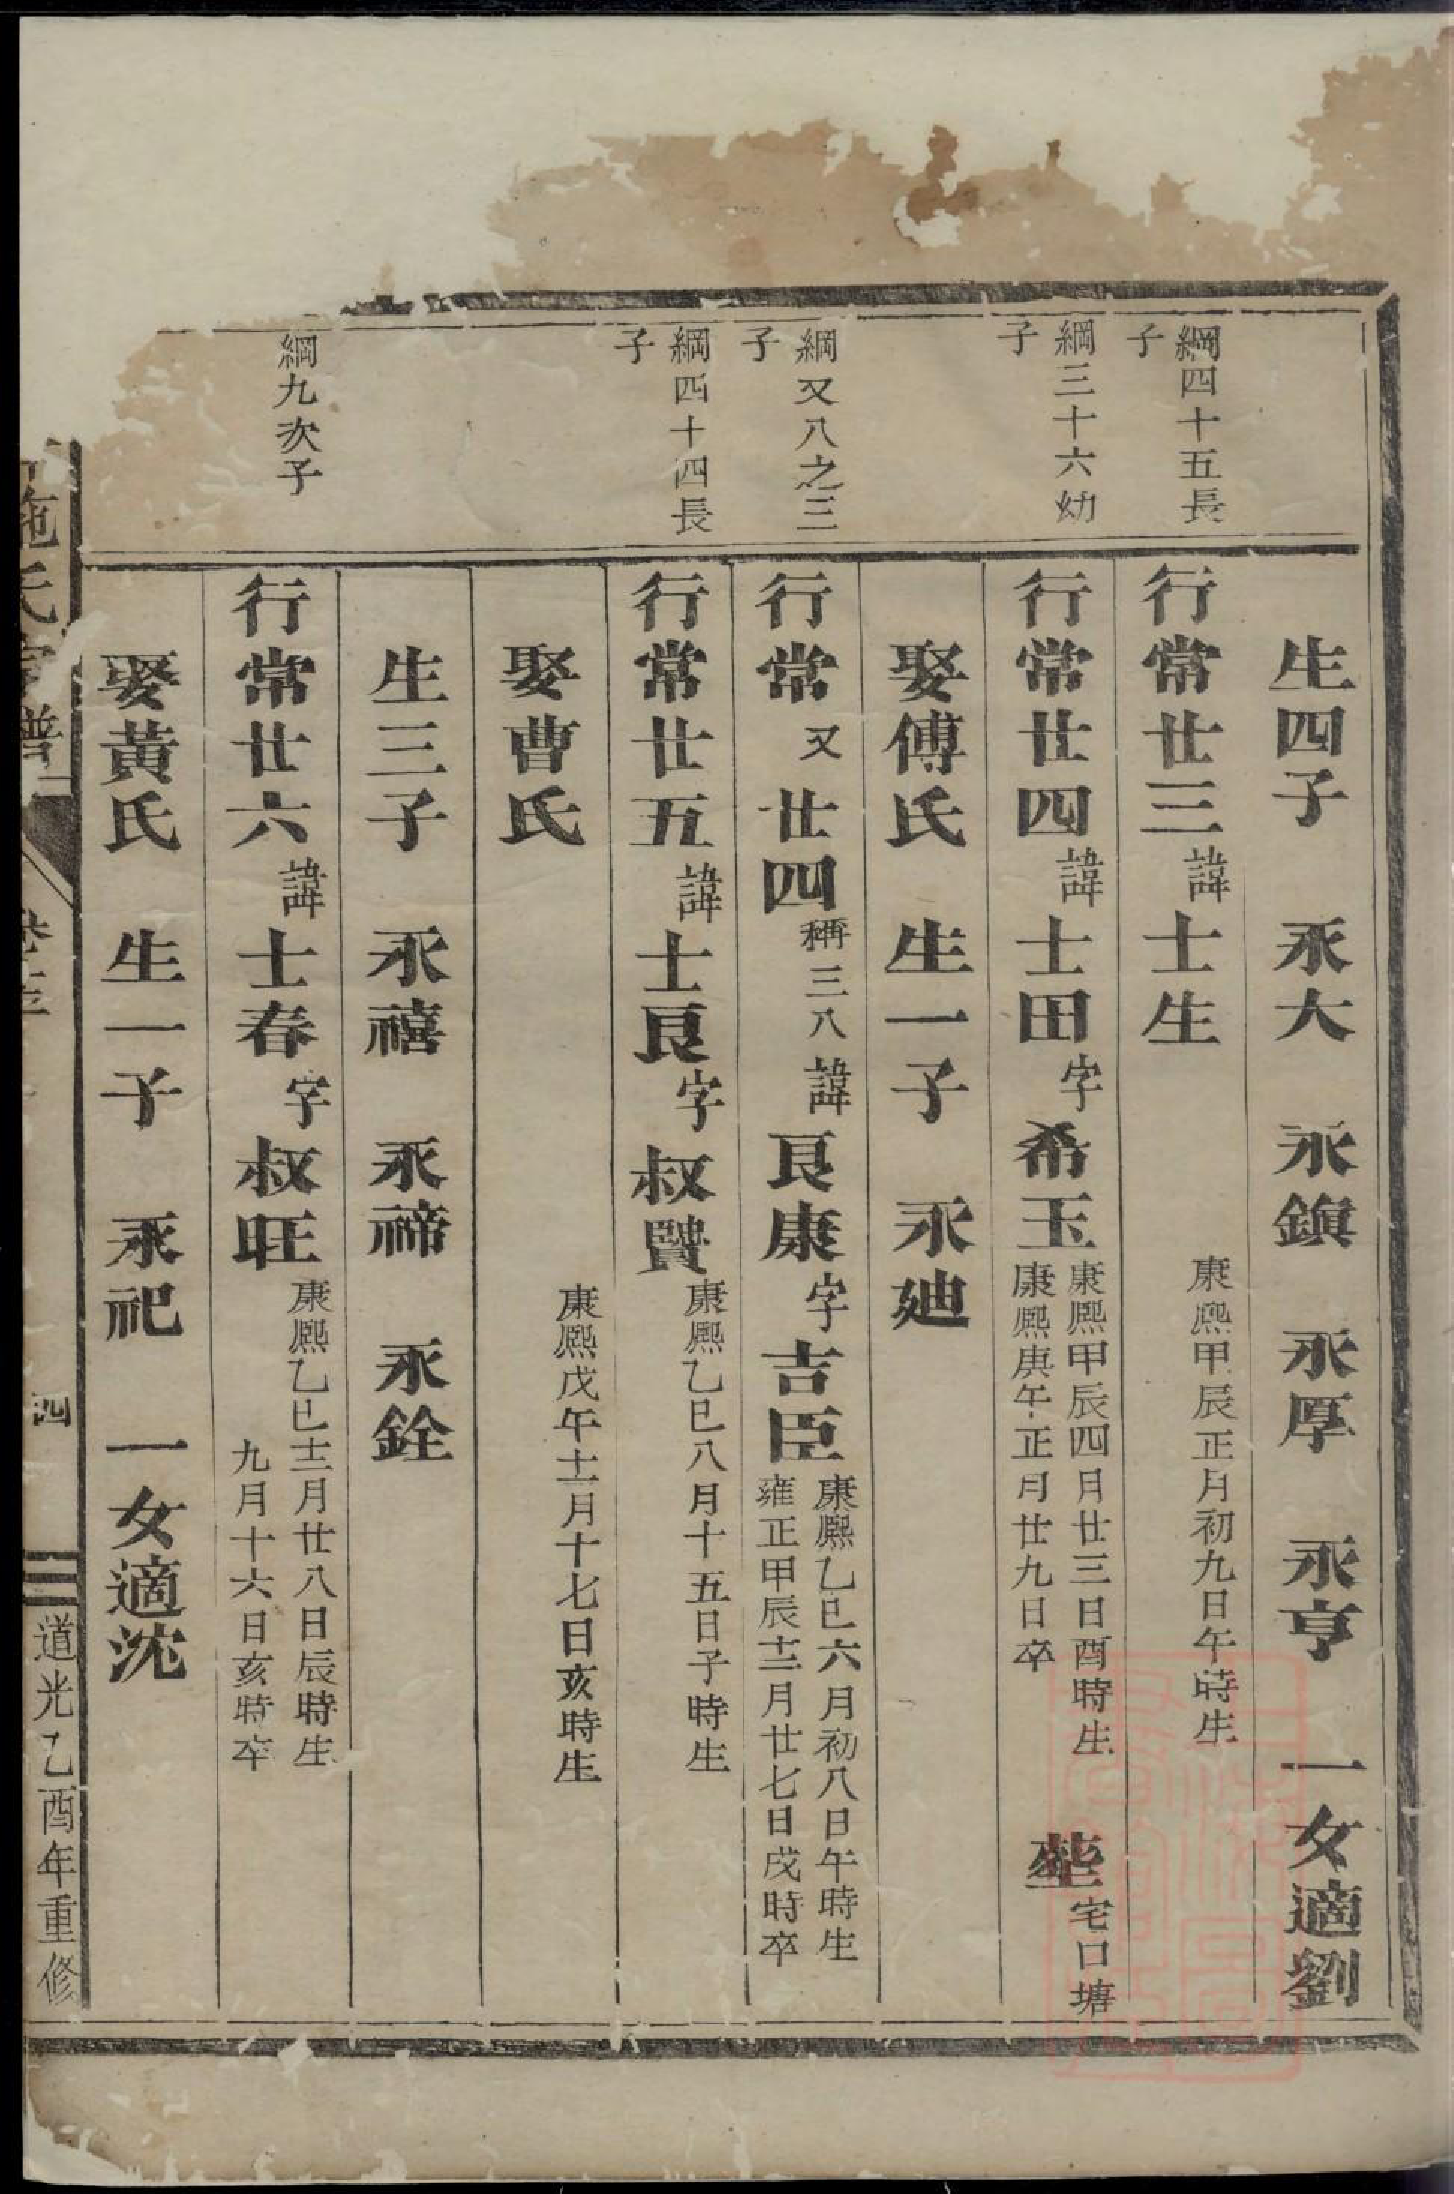 生四子 永大 永鎭 永厚 永亨 一女適劉
綱四十五長子
行常廿三諱士生 康熙甲辰正月初九日午時生
綱三十六幼子
行常廿四諱士田字希玉 康熙甲辰四月廿三日酉時生
康熙庚午正月廿九日卒
塟宅口塘
娶傅氏 生一子 永廸
綱又八之三子
行常又廿四稱三八諱良康字吉臣 康熙乙巳六月初八日午時生
雍正甲辰十二月廿七日戌時卒
綱四十四長子
行常廿五諱士良字叔賢 康熙乙巳八月十五日子時生
娶曹氏 康熙戊午十一月十七日亥時生
生三子 永禧 永禘 永銓
綱九次子
行常廿六諱士春字叔旺 康熙乙巳十二月廿八日辰時生
九月十六日亥時卒
娶黃氏 生一子 永祀 一女適沈
施氏宗譜
四
道光乙酉年重修